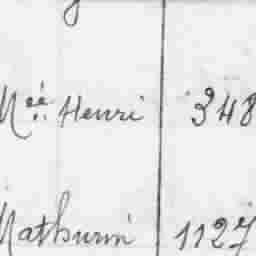 Henri 348
Mathurin 1127